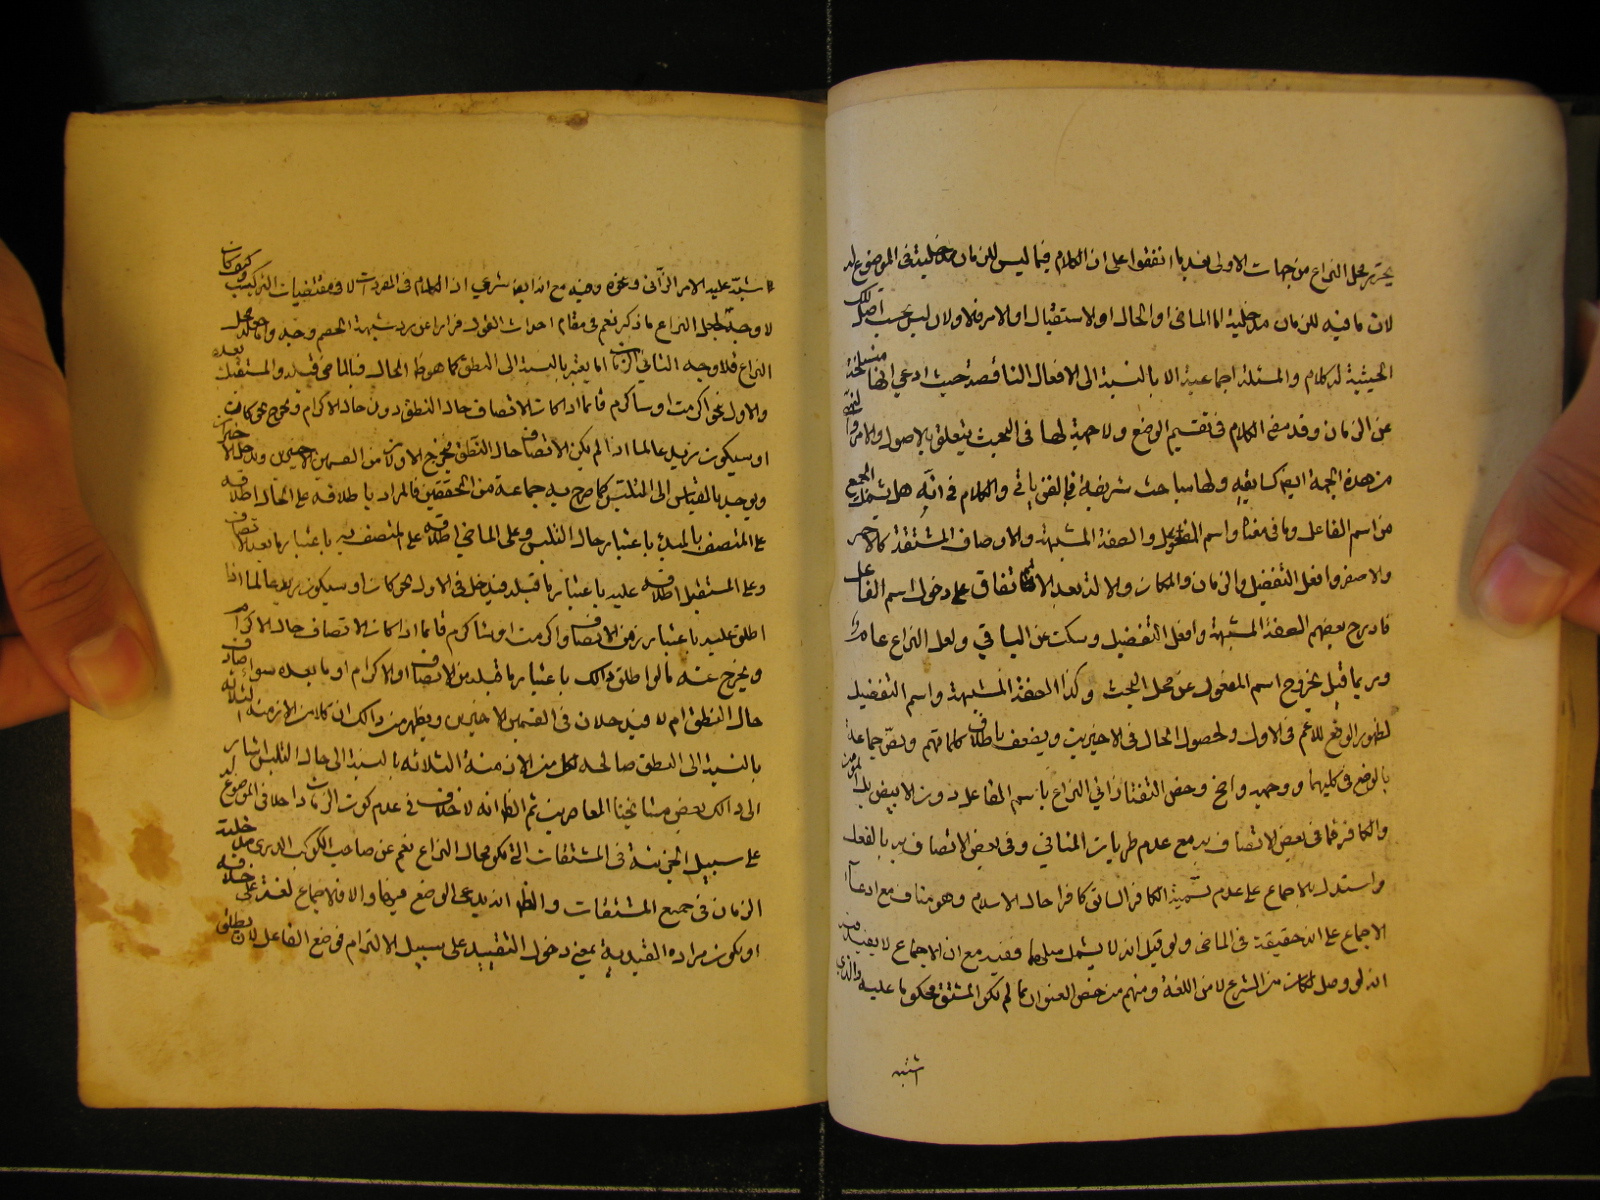 تحرير محل النزاع من جهات الاولى بعد ما اتفقوا على ان الكلام فيما ليس للزمان مدخلية في الموضوع له
لان ما فيه للزمان مدخلية اما الماضي او الحال او الاستقبال او الامر فلا ولان ليس بحسب اصل تلك
الحيثية له كلام والمسئلة اجماعية الا بالنسبة الى الافعال الناقصة حيث ادعي انها منسلخة
عن الزمان وقد مضى الكلام في تقسيم الوضع ولا جهة لها في البحث يتعلق بالاصول والامر
من هذه الجهة ايضا كسابقه ولها مباحث شريفة في الفن ياتي والكلام في انه هل يشمل الجميع
من اسم الفاعل وما في معناه واسم المفعول والصفة المشبهة والاوصاف المشتقة كالاحمر
والاصفر وافعل التفضيل والزمان والمكان والالة بعد الاتفاق على دخول اسم الفاعل
فادرج بعضهم الصفة المشبهة وافعل التفضيل وسكت عن الباقي ولعل النزاع عام
وربما قيل بخروج اسم المفعول عن محل البحث وكذا الصفة المشبهة واسم التفضيل
لظهور الوضع للاعم في الاول ولحصول الحال في الاخيرين ويضعف باطلاق كلماتهم ونص جماعة
بالوضع في كليهما ووجهه واضح وخص التفتازاني النزاع باسم الفاعل دون الابيض والمؤمن
والكافر فما في بعض الاتصاف به مع عدم طريان المنافي وفي بعض الاتصاف به بالفعل
واستدل بالاجماع على عدم تسمية الكافر السابق كافرا حال الاسلام وهو مناف مع ادعاء
الاجماع على انه حقيقة في الماضي ولو قيل انه لا يشمل ففيه مع ان الاجماع لا يفيد
انه لو وصل لكان من الشرع لا من اللغة ومنهم من خص العنوان بما لم يكن المشتق محكوما عليه والذي
اشتبه
اشتبه عليه الامر الزاني وغيره وفيه مع انه ايضا شرعي اذ الكلام في المفردات لا في مقتضيات التركيب
لا وجه لجعل النزاع ما ذكر نعم في مقام احداث القول فرارا عن برد شبهة الخصم وجه واما كونه محل
النزاع فلا وجه الثاني الزمان اما يعتبر بالنسبة الى النطق كما هو ظ الحال فالماضي قبله والمستقبل بعده
والاول نحو اكرمت او ساكرم قائما اذا كان الاتصاف حال النطق دون حال الاكرام ويخرج نحو كان
او سيكون زيد عالما اذا لم يكن الاتصاف حال النطق فيخرج الاولان من القسمين الاخيرين ويدخل الاخير
ويوجد بالقياس الى التلبس كما صرح به جماعة من المحققين فالمراد باطلاقه على الحال اطلاقه
على المتصف بالمبدء باعتبار حال التلبس وعلى الماضي اطلاقه على المتصف به باعتبار ما بعد الاتصاف
وعلى المستقبل اطلاقه عليه باعتبار ما قبله فيدخل في الاول نحو كان او سيكون زيد عالما اذا
اطلق عليه باعتبار زمن الاتصاف واكرمت او ساكرم قائما اذا كان الاتصاف حال الاكرام
ويخرج عنه ما لو اطلق ذلك باعتبار ما قبله من الاتصاف او الاكرام او ما بعده سواء صادف
حال النطق ام لا فيدخلان في القسمين الاخيرين ويظهر من ذلك ان كلا من الازمنة الثلاثة
بالنسبة الى النطق صالحه لكل من الازمنة الثلاثه بالنسبة الى حال التلبس اشار
الى ذلك بعض مشايخنا المعاصرين ثم الظ انه لا خلاف في عدم كون الزمان داخلا في الموضوع له
على سبيل الجزئية في المشتقات التي تكون محال النزاع نعم عن صاحب الكوكب الدري مدخلية
الزمان في جميع المشتقات والظ انه يدعي الوضع فيها والا فلا اجماع لغة على خلافه
او يكون مراده القيدية بمعنى دخول التقييد على سبيل الالتزام في وضع الفاعل لان يطلق